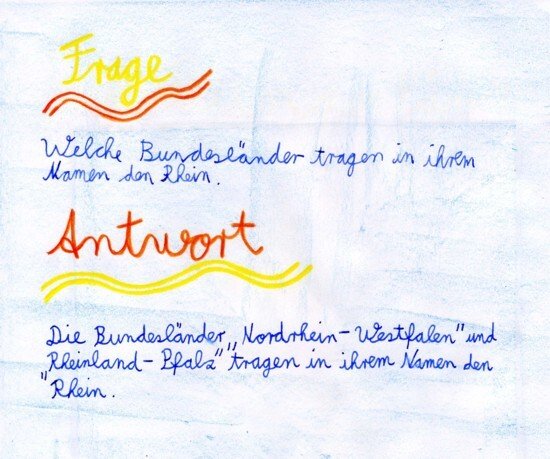 Frage
Welche Bundesländer tragen in ihrem
Namen den Rhein.
Antwort
Die Bundesländer „Nordrhein-Westfalen" und
„Rheinland-Pfalz" tragen in ihrem Namen den
Rhein.